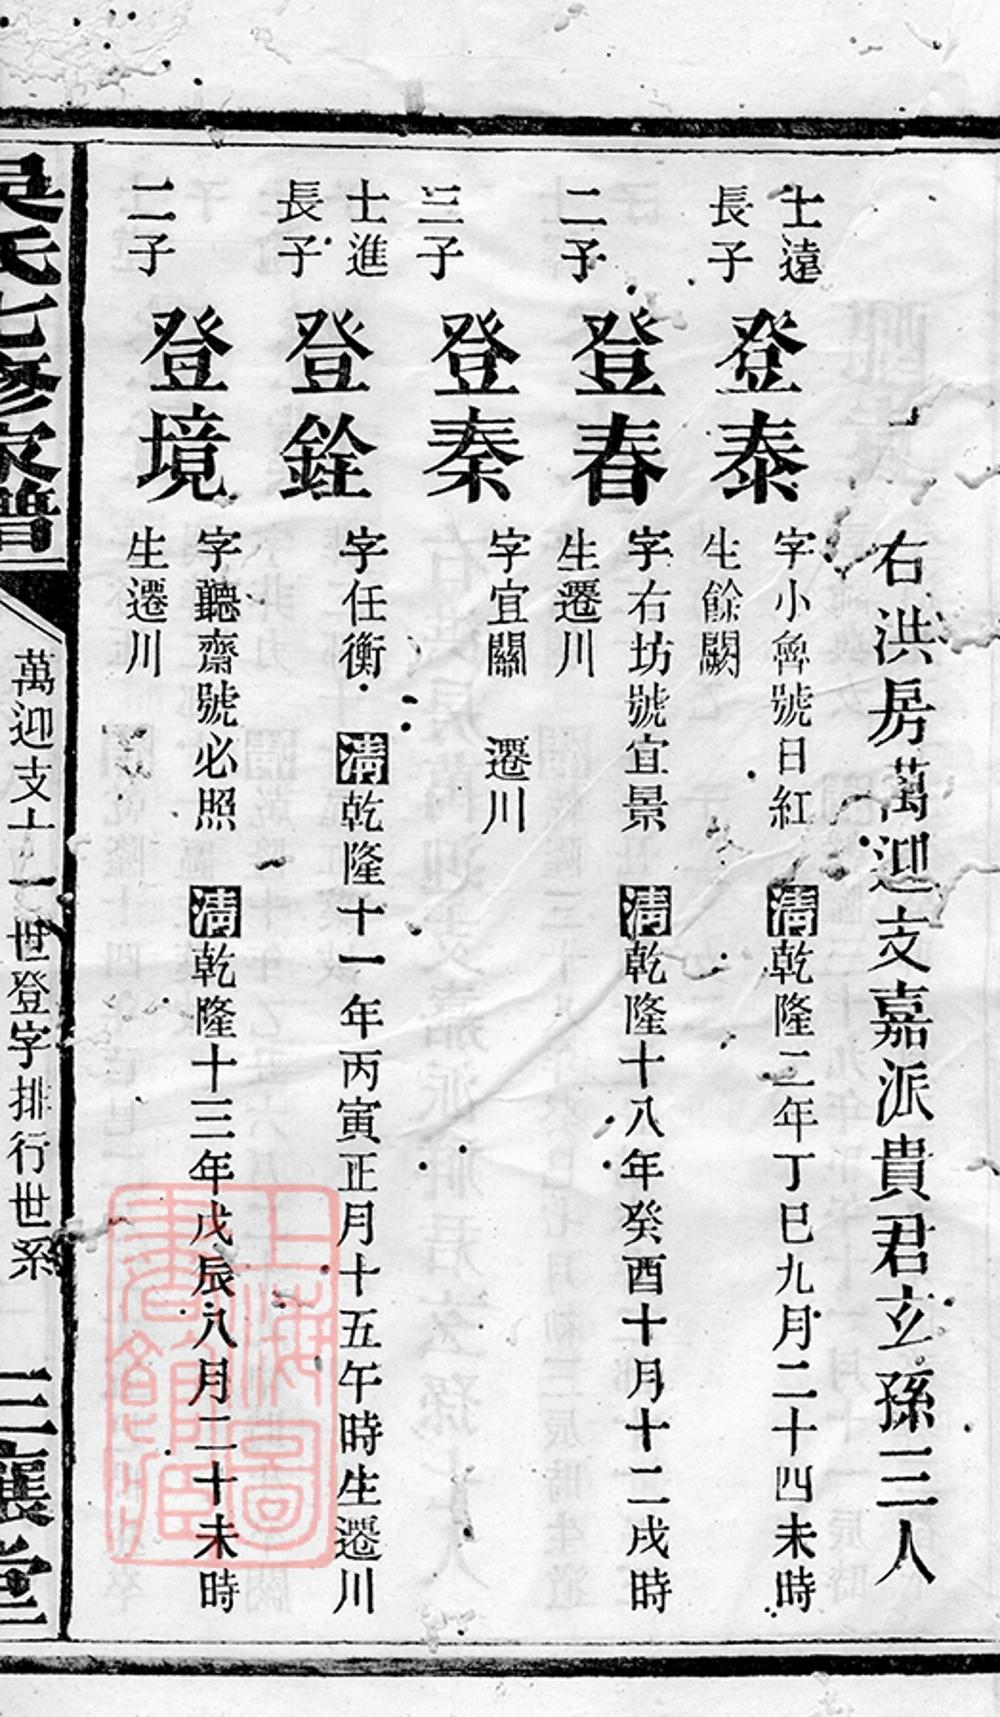 右洪房萬迎支嘉派貴君玄孫三人
士遠
長子
登泰
字小魯號日紅 清乾隆二年丁巳九月二十四未時
生餘闕
二子
登春
字右坊號宜景 清乾隆十八年癸酉十月十二戌時
生遷川
三子
登秦
字宜關 遷川
士進
長子
登銓
字任衡 清乾隆十一年丙寅正月十五午時生遷川
二子
登境
字聽齋號必照 清乾隆十三年戊辰八月二十未時
生遷川
吳氏七修家譜
萬迎支十一世登字排行世系
三讓堂
上海圖書館藏